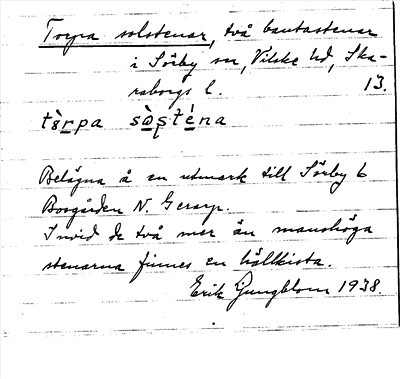 Torpa solstenar, två bautastenar
i Sörby sn, Vilske hd, Ska-
raborgs l. 13.
tɜ̀rpa sòsténa
Belägna å en utmark till Sörby 6
Bosgården N. Gerum.
Invid de två mer än manshöga
stenarna finnes en hällkista.
Erik Ljungblom 1938.